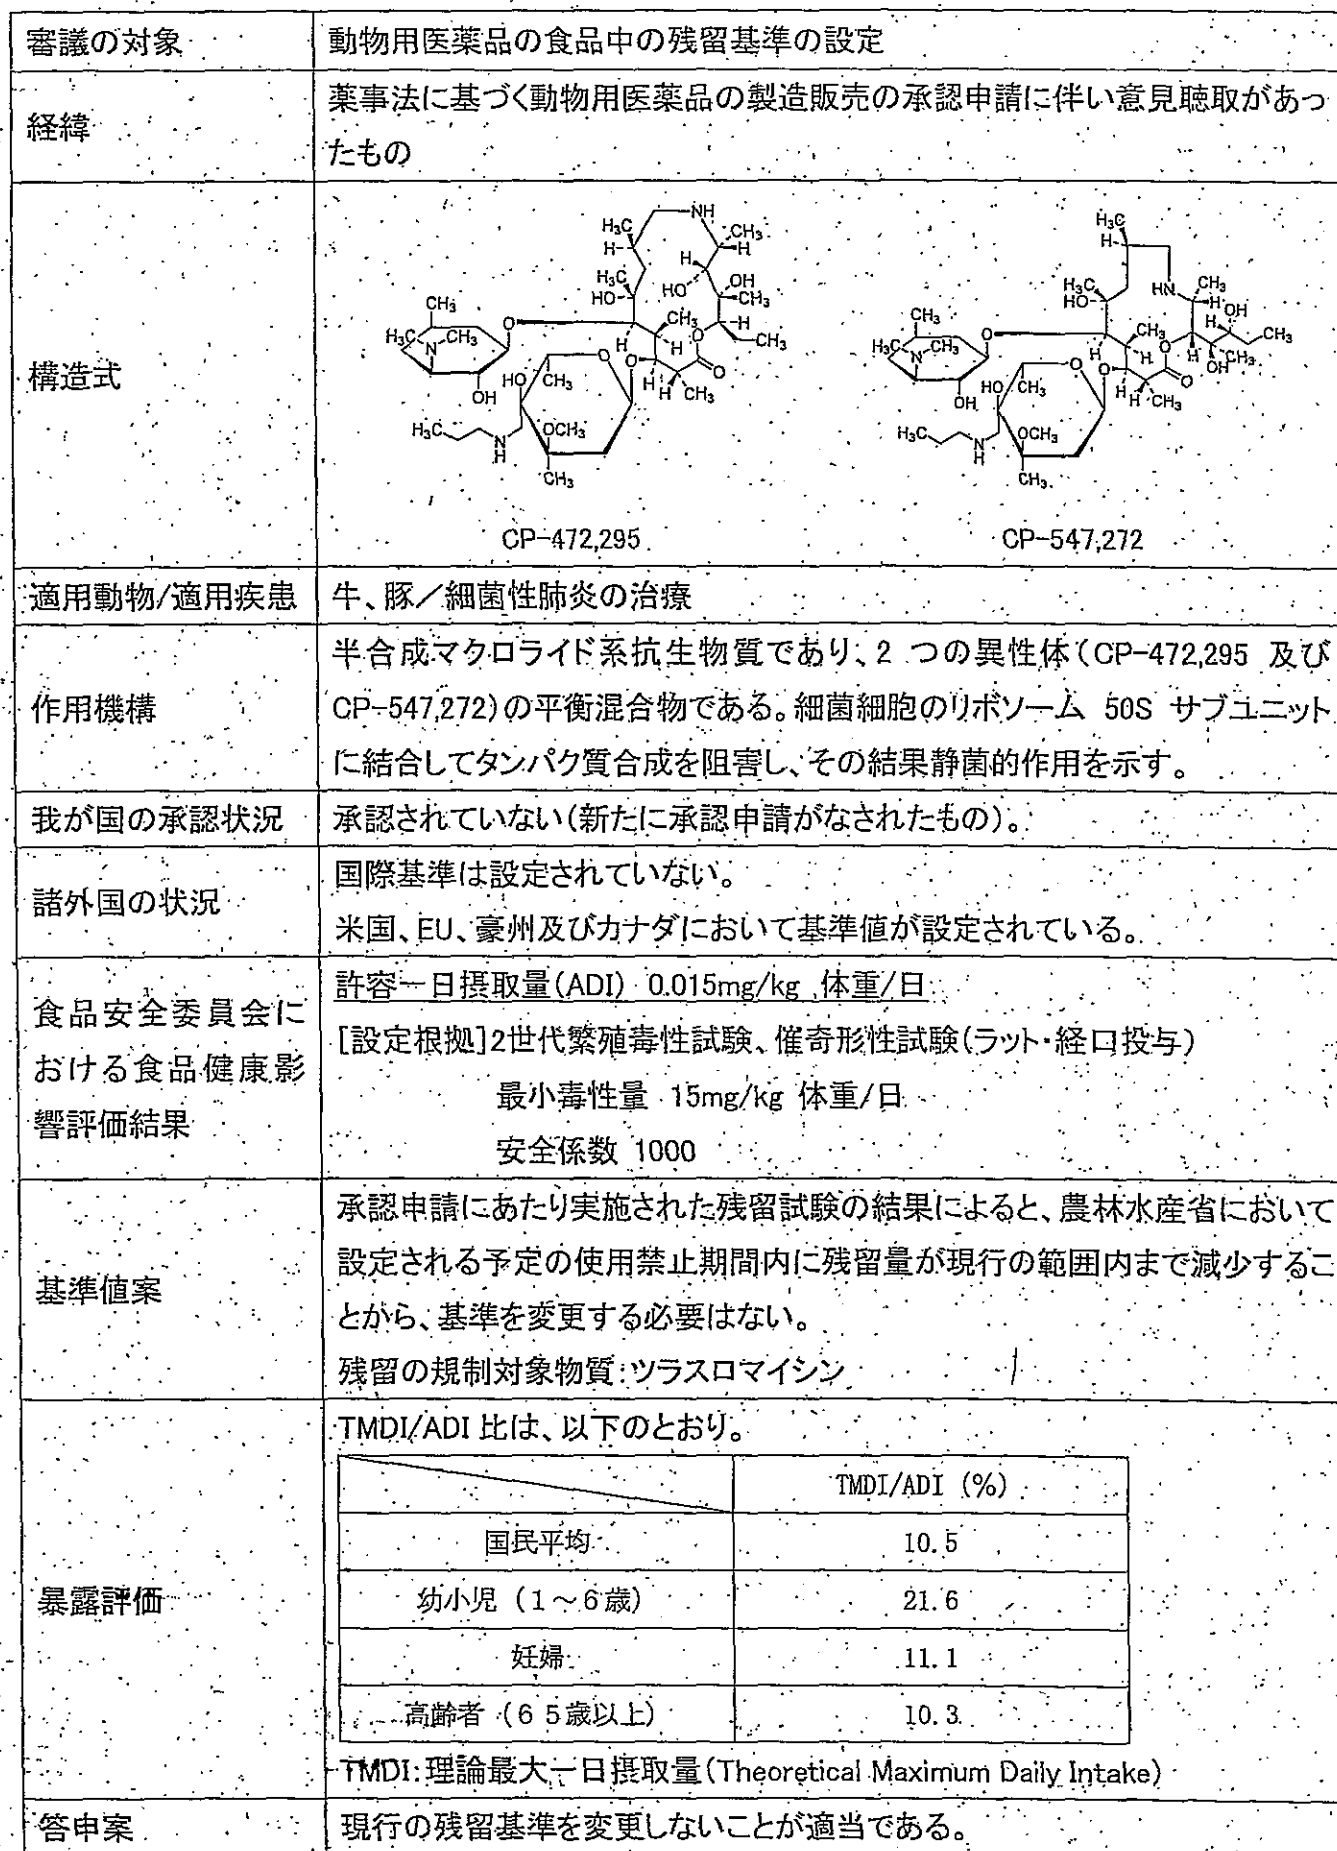 審議の対象
動物用医薬品の食品中の残留基準の設定
経緯
薬事法に基づく動物用医薬品の製造販売の承認申請に伴い意見聴取があっ
たもの
構造式
NH
H₃C
CH₃
H
H
H
H₃C
HO
HO
OH
CH₃
CH₃
O
CH₃
O
H
CH₃
H₃C
N
CH₃
H
H
O
O
O
HO
CH₃
H
H
CH₃
OH
H₃C
N
H
OCH₃
CH₃
CP-472,295
H₃C
H
H₃C
HO
HN
CH₃
H
OH
H
CH₃
CH₃
O
CH₃
O
H
H
CH₃
OH
H₃C
N
O
O
O
HO
CH₃
H
H
CH₃
OH
H₃C
N
H
OCH₃
CH₃
CP-547,272
適用動物/適用疾患
牛、豚／細菌性肺炎の治療
作用機構
半合成マクロライド系抗生物質であり、2 つの異性体(CP-472,295 及び
CP-547,272)の平衡混合物である。細菌細胞のリボソーム 50S サブユニット
に結合してタンパク質合成を阻害し、その結果静菌的作用を示す。
我が国の承認状況
承認されていない(新たに承認申請がなされたもの)。
諸外国の状況
国際基準は設定されていない。
米国、EU、豪州及びカナダにおいて基準値が設定されている。
食品安全委員会に
おける食品健康影
響評価結果
許容一日摂取量(ADI) 0.015mg/kg 体重/日
[設定根拠]2世代繁殖毒性試験、催奇形性試験(ラット・経口投与)
最小毒性量 15mg/kg 体重/日
安全係数 1000
基準値案
承認申請にあたり実施された残留試験の結果によると、農林水産省において
設定される予定の使用禁止期間内に残留量が現行の範囲内まで減少するこ
とから、基準を変更する必要はない。
残留の規制対象物質:ツラスロマイシン
暴露評価
TMDI/ADI 比は、以下のとおり。
TMDI/ADI (%)
国民平均 10.5
幼小児 (1～6歳) 21.6
妊婦 11.1
高齢者 (65歳以上) 10.3
TMDI:理論最大一日摂取量(Theoretical Maximum Daily Intake)
答申案
現行の残留基準を変更しないことが適当である。